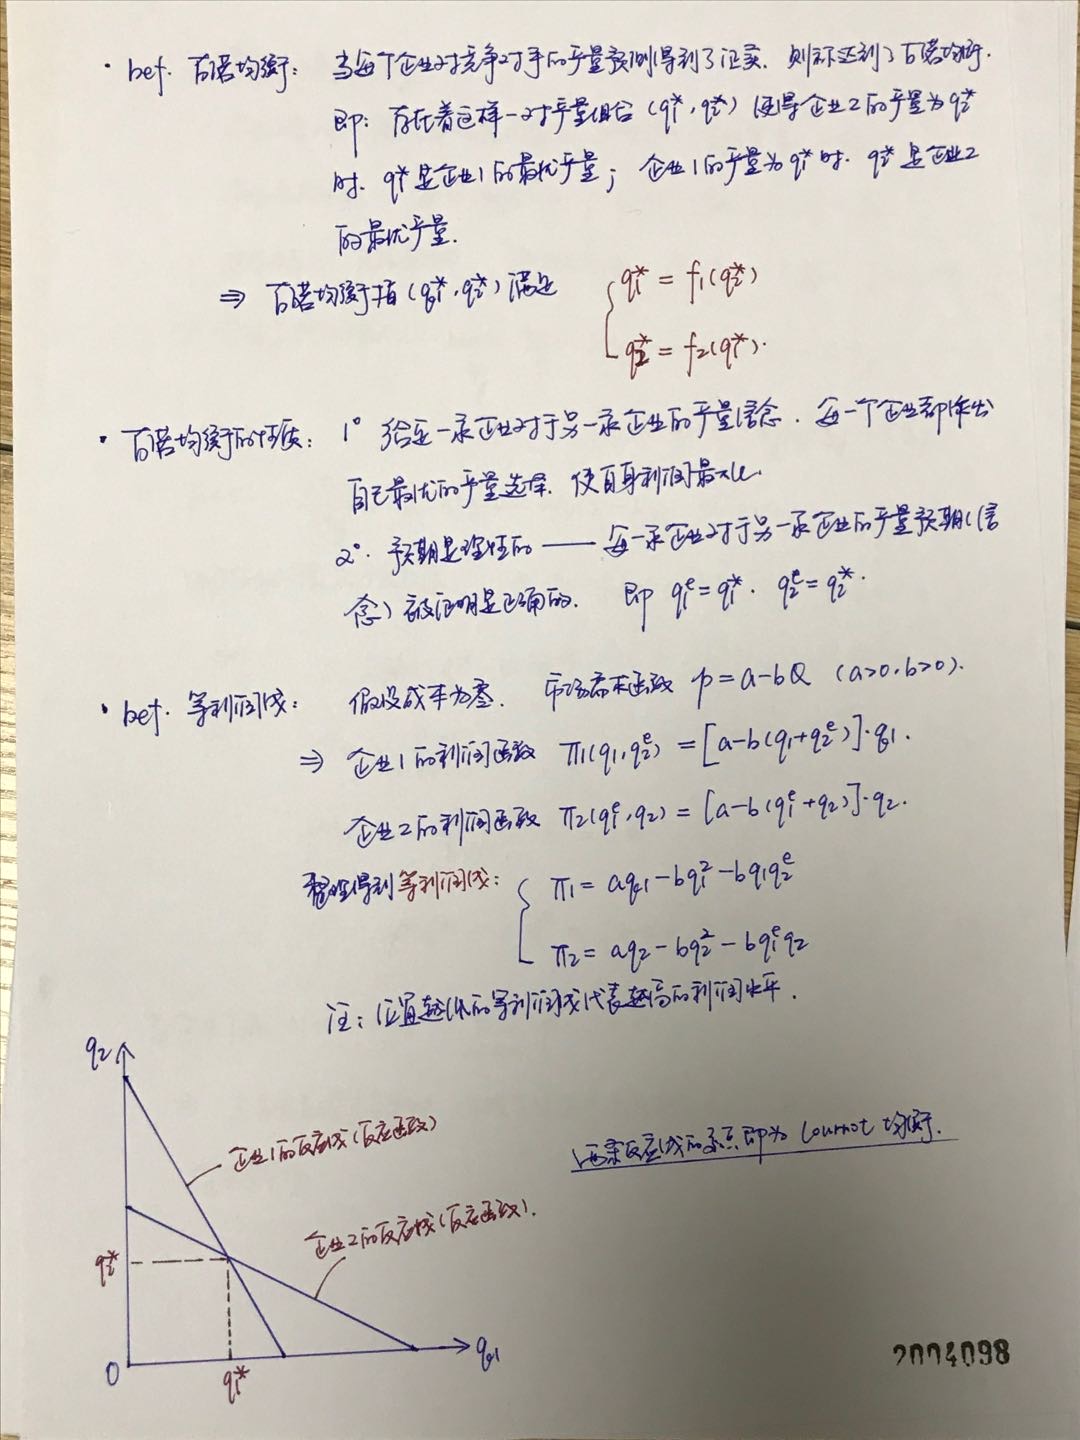 · Def. 古诺均衡： 当每个企业对竞争对手的产量预测得到了证实，则称达到了古诺均衡.
即：存在着这样一对产量组合 (q₁*, q₂*) 使得企业2的产量为q₂*
时，q₁*是企业1的最优产量；企业1的产量为q₁*时，q₂*是企业2
的最优产量.
⇒ 古诺均衡指 (q₁*, q₂*) 满足 { q₁* = f₁(q₂*)
q₂* = f₂(q₁*).
· 古诺均衡的性质： 1° 给定一家企业对于另一家企业的产量信念，每一个企业都作出
自己最优的产量选择，使自身利润最大化.
2°. 预期是理性的 —— 每一家企业对于另一家企业的产量预期（信
念）被证明是正确的. 即 q₁ᵉ = q₁*. q₂ᵉ = q₂*.
· Def. 等利润线： 假设成本为零. 市场需求函数 p = a-bQ (a>0, b>0).
⇒ 企业1的利润函数 π₁(q₁, q₂ᵉ) = [a-b(q₁+q₂ᵉ)]·q₁.
企业2的利润函数 π₂(q₁ᵉ, q₂) = [a-b(q₁ᵉ+q₂)]·q₂.
整理得到等利润线： { π₁ = aq₁ - bq₁² - bq₁q₂ᵉ
π₂ = aq₂ - bq₂² - bq₁ᵉq₂
注：位置越低的等利润线代表越高的利润水平.
q₂
企业1的反应线（反应函数）
两条反应线的交点即为 Cournot 均衡.
企业2的反应线（反应函数）.
q₂*
0
q₁*
q₁
2004098